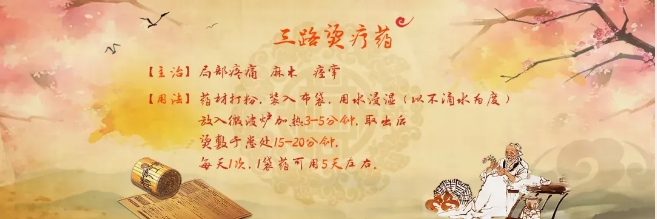 三路烫疗药
【主治】局部疼痛 麻木 痉挛
【用法】药材打粉，装入布袋，用水浸湿（以不滴水为度）
放入微波炉加热3-5分钟，取出后
烫敷于患处15-20分钟，
每天1次，1袋药可用5天左右。